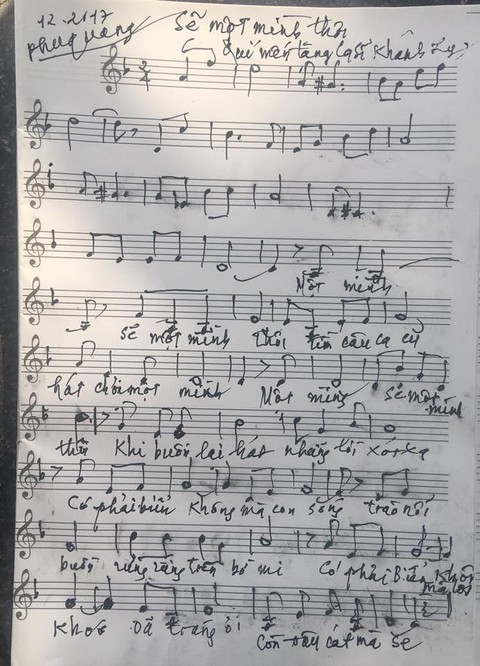 12.2117
phuquang
Sẽ một mình thôi
Quí mến tặng ca sĩ Khánh Ly
2/4
Một mình
Sẽ một mình thôi tìm câu ca cũ
hát chơi một mình Một mình Sẽ một mình
thôi Khi buồn lại hát những lời xót xa
Có phải biển không mà con sóng trao nổi
buồn rưng rưng trên bờ mi Có phải Biển khóc
mà
Khóc Đã trăng ơi Còn dấu cát mà se